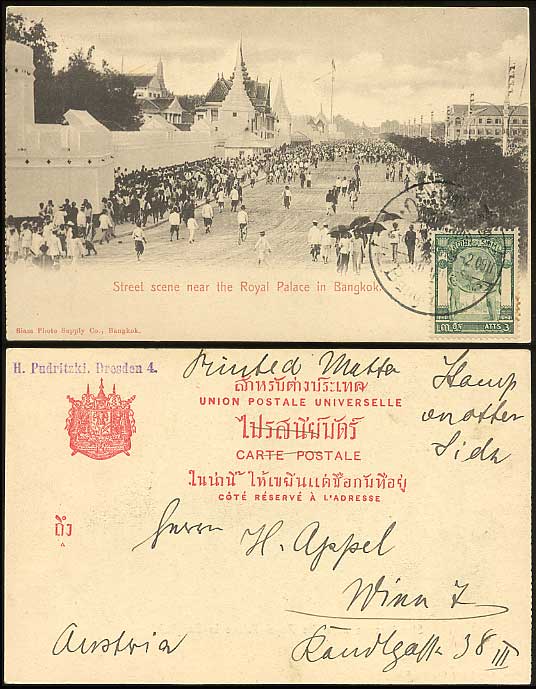 Street scene near the Royal Palace in Bangkok
Siam Photo Supply Co., Bangkok.
ATTS 3
H. Pudritzki. Dresden 4.
Printed Matter
สำหรับต่างประเทศ
UNION POSTALE UNIVERSELLE
ไปรสนียบัตร์
CARTE POSTALE
ในน่านี้ ให้เขยีนแต่ชื่อกับที่อยู่
CÔTÉ RÉSERVÉ À L'ADRESSE
Stamp
on other
Side
ถึง
A
Herrn H. Appel
Wien 7
Kandlgasse 38 III
Austria